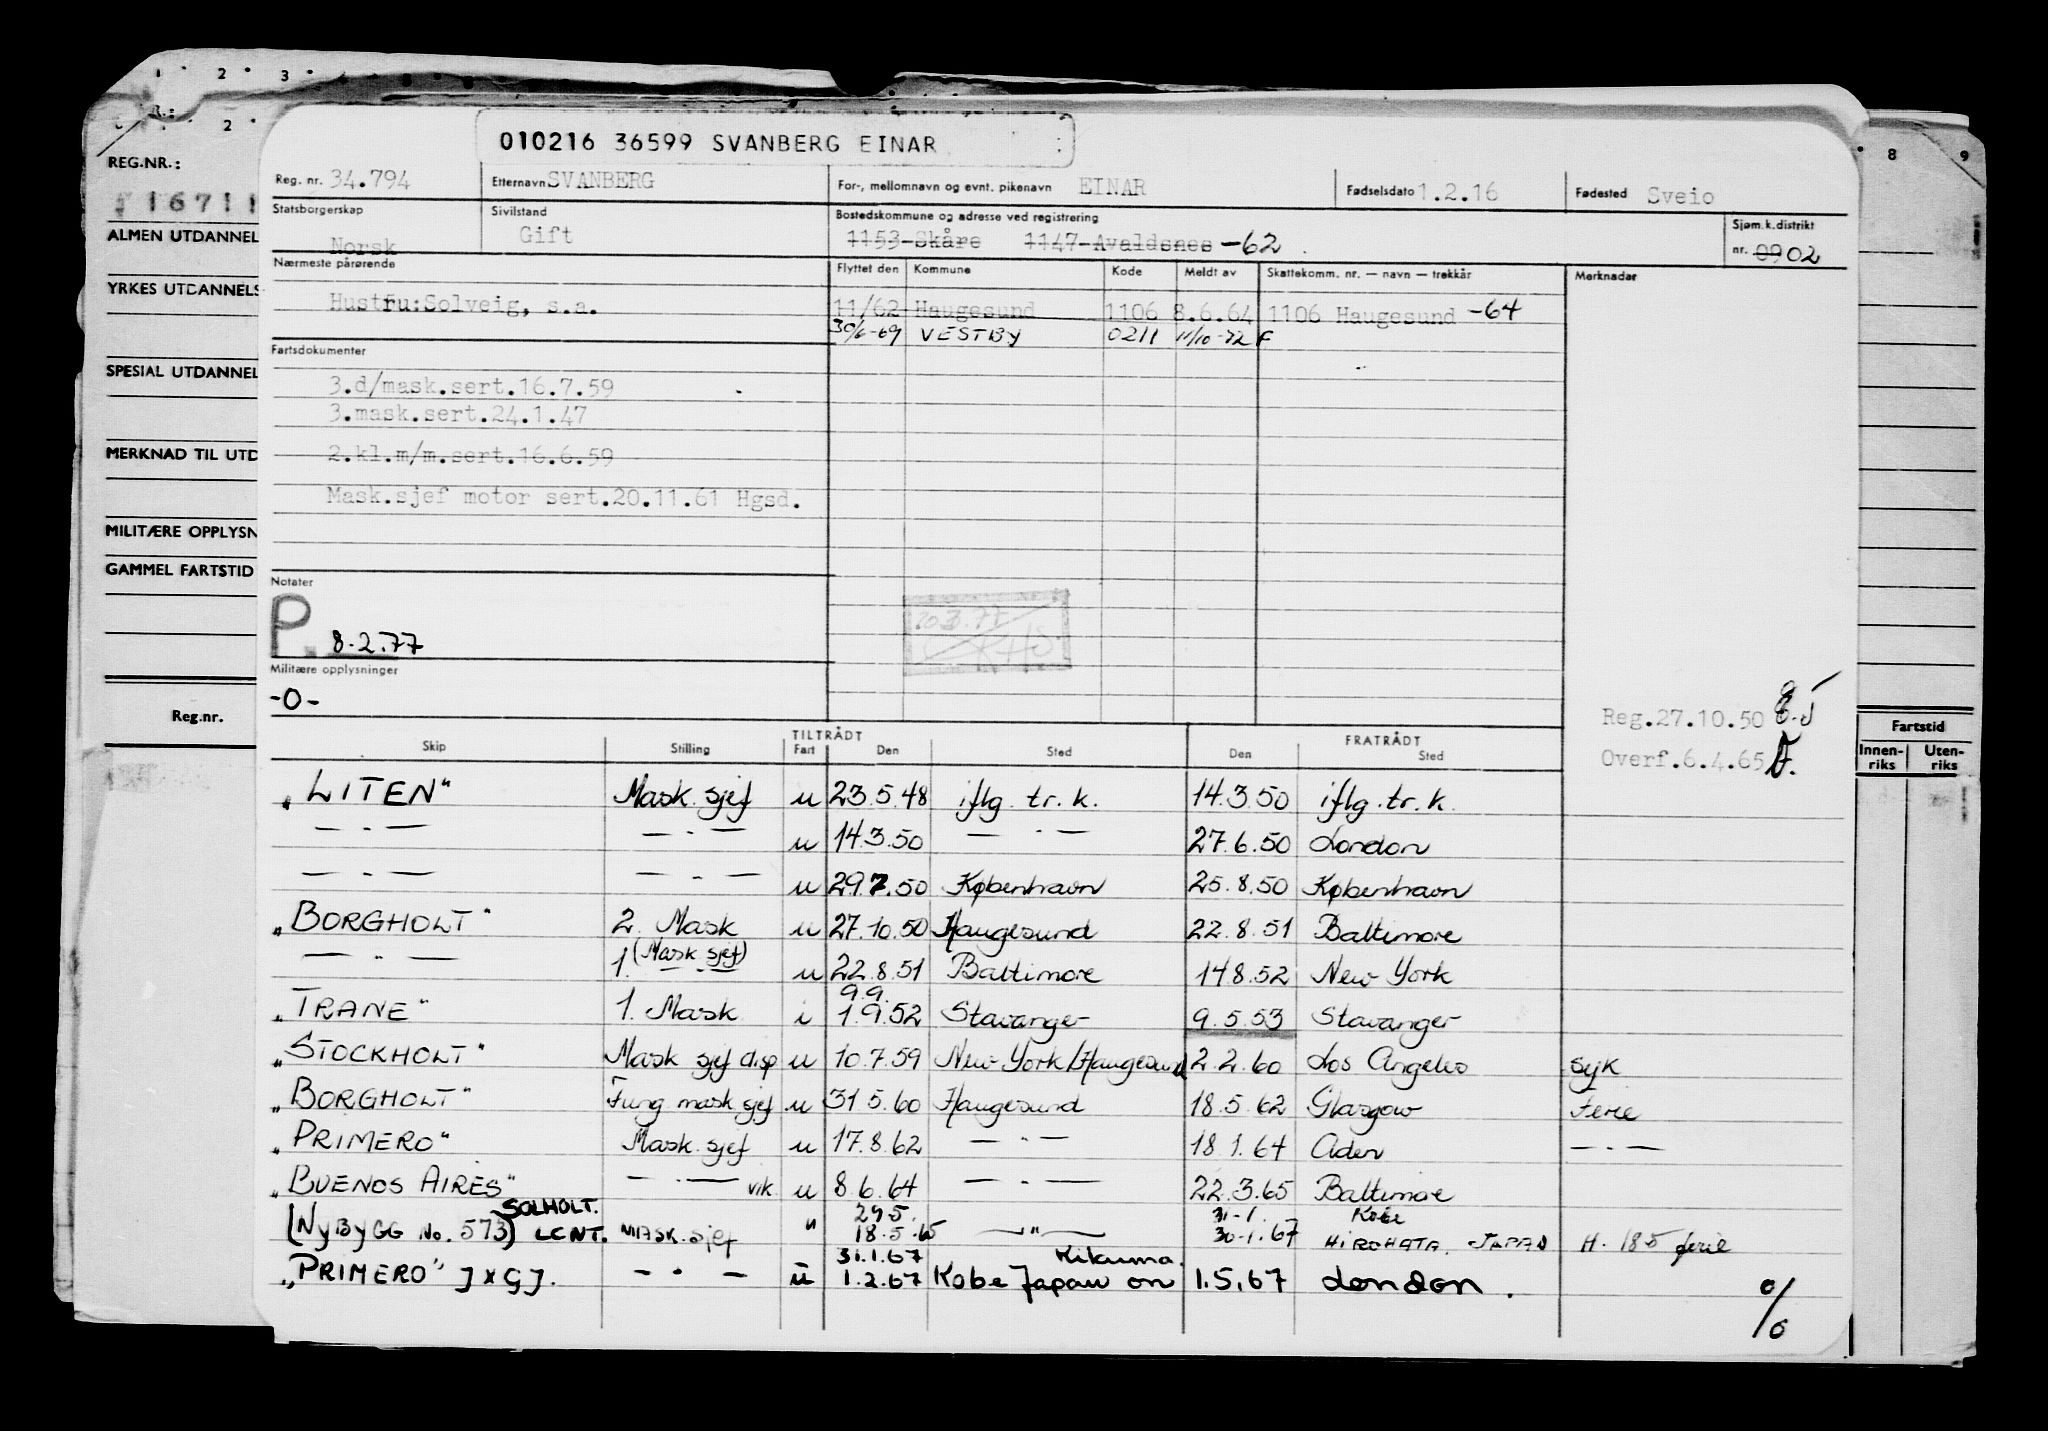 1 · 2 · 3 ·
2 ·
8 · 9
REG.NR.:
16711
ALMEN UTDANNEL
YRKES UTDANNELS
SPESIAL UTDANNEL
MERKNAD TIL UTD
MILITÆRE OPPLYSN
GAMMEL FARTSTID
Reg.nr.
Fartstid
Innen-riks Uten-riks
010216 36599 SVANBERG EINAR
Reg. nr. 34.794 Etternavn SVANBERG For-, mellomnavn og evnt. pikenavn EINAR Fødselsdato 1.2.16 Fødested Sveio
Statsborgerskap Sivilstand Bostedskommune og adresse ved registrering Sjøm.k.distrikt
Norsk Gift 1153-Skåre 1147-Avaldsnes -62 nr. 0902
Nærmeste pårørende Flyttet den Kommune Kode Meldt av Skattekomm. nr. — navn — trekkår Merknader
Hustru:Solveig, s.a. 11/62 Haugesund 1106 8.6.64 1106 Haugesund -64
30/6-69 VESTBY 0211 11/10-72 F
Fartsdokumenter
3.d/mask.sert.16.7.59
3.mask.sert.24.1.47
2.kl.m/m.sert.16.6.59
Mask.sjef motor sert.20.11.61 Hgsd.
Notater
P. 8.2.77
Militære opplysninger
-0-
Reg.27.10.50
Overf.6.4.65
TILTRÅDT FRATRÅDT
Skip Stilling Fart Den Sted Den Sted
"LITEN" Mask. sjef u 23.5.48 iflg. tr. k. 14.3.50 iflg. tr. k.
— · — — · — u 14.3.50 — · — 27.6.50 London
— · — — · — u 29.7.50 København 25.8.50 København
"BORGHOLT" 2. Mask u 27.10.50 Haugesund 22.8.51 Baltimore
— " — 1. — " — (Mask sjef) u 22.8.51 Baltimore 14.8.52 New York
9.9.
"TRANE" 1. Mask i 1.9.52 Stavanger 9.5.53 Stavanger
"STOCKHOLT" Mask sjef disp u 10.7.59 New York/Haugesund 2.2.60 Los Angeles syk
"BORGHOLT" Fung mask sjef u 31.5.60 Haugesund 18.5.62 Glasgow Ferie
"PRIMERO" Mask. sjef u 17.8.62 — " — 18.1.64 Aden — · —
"BUENOS AIRES" — · — vik. u 8.6.64 — · — 22.3.65 Baltimore
SOLHOLT. 29.5. 31-1. Kobe
(NYBYGG No. 573) LCNT. MASK. sjef " 18.5.65 — " — 30-1.67 HIROHATA, JAPAN H. 185 ferie
31.1.67 Kikuma.
"PRIMERO" JXGJ. — · — u 1.2.67 Kobe Japan on 1.5.67 London.